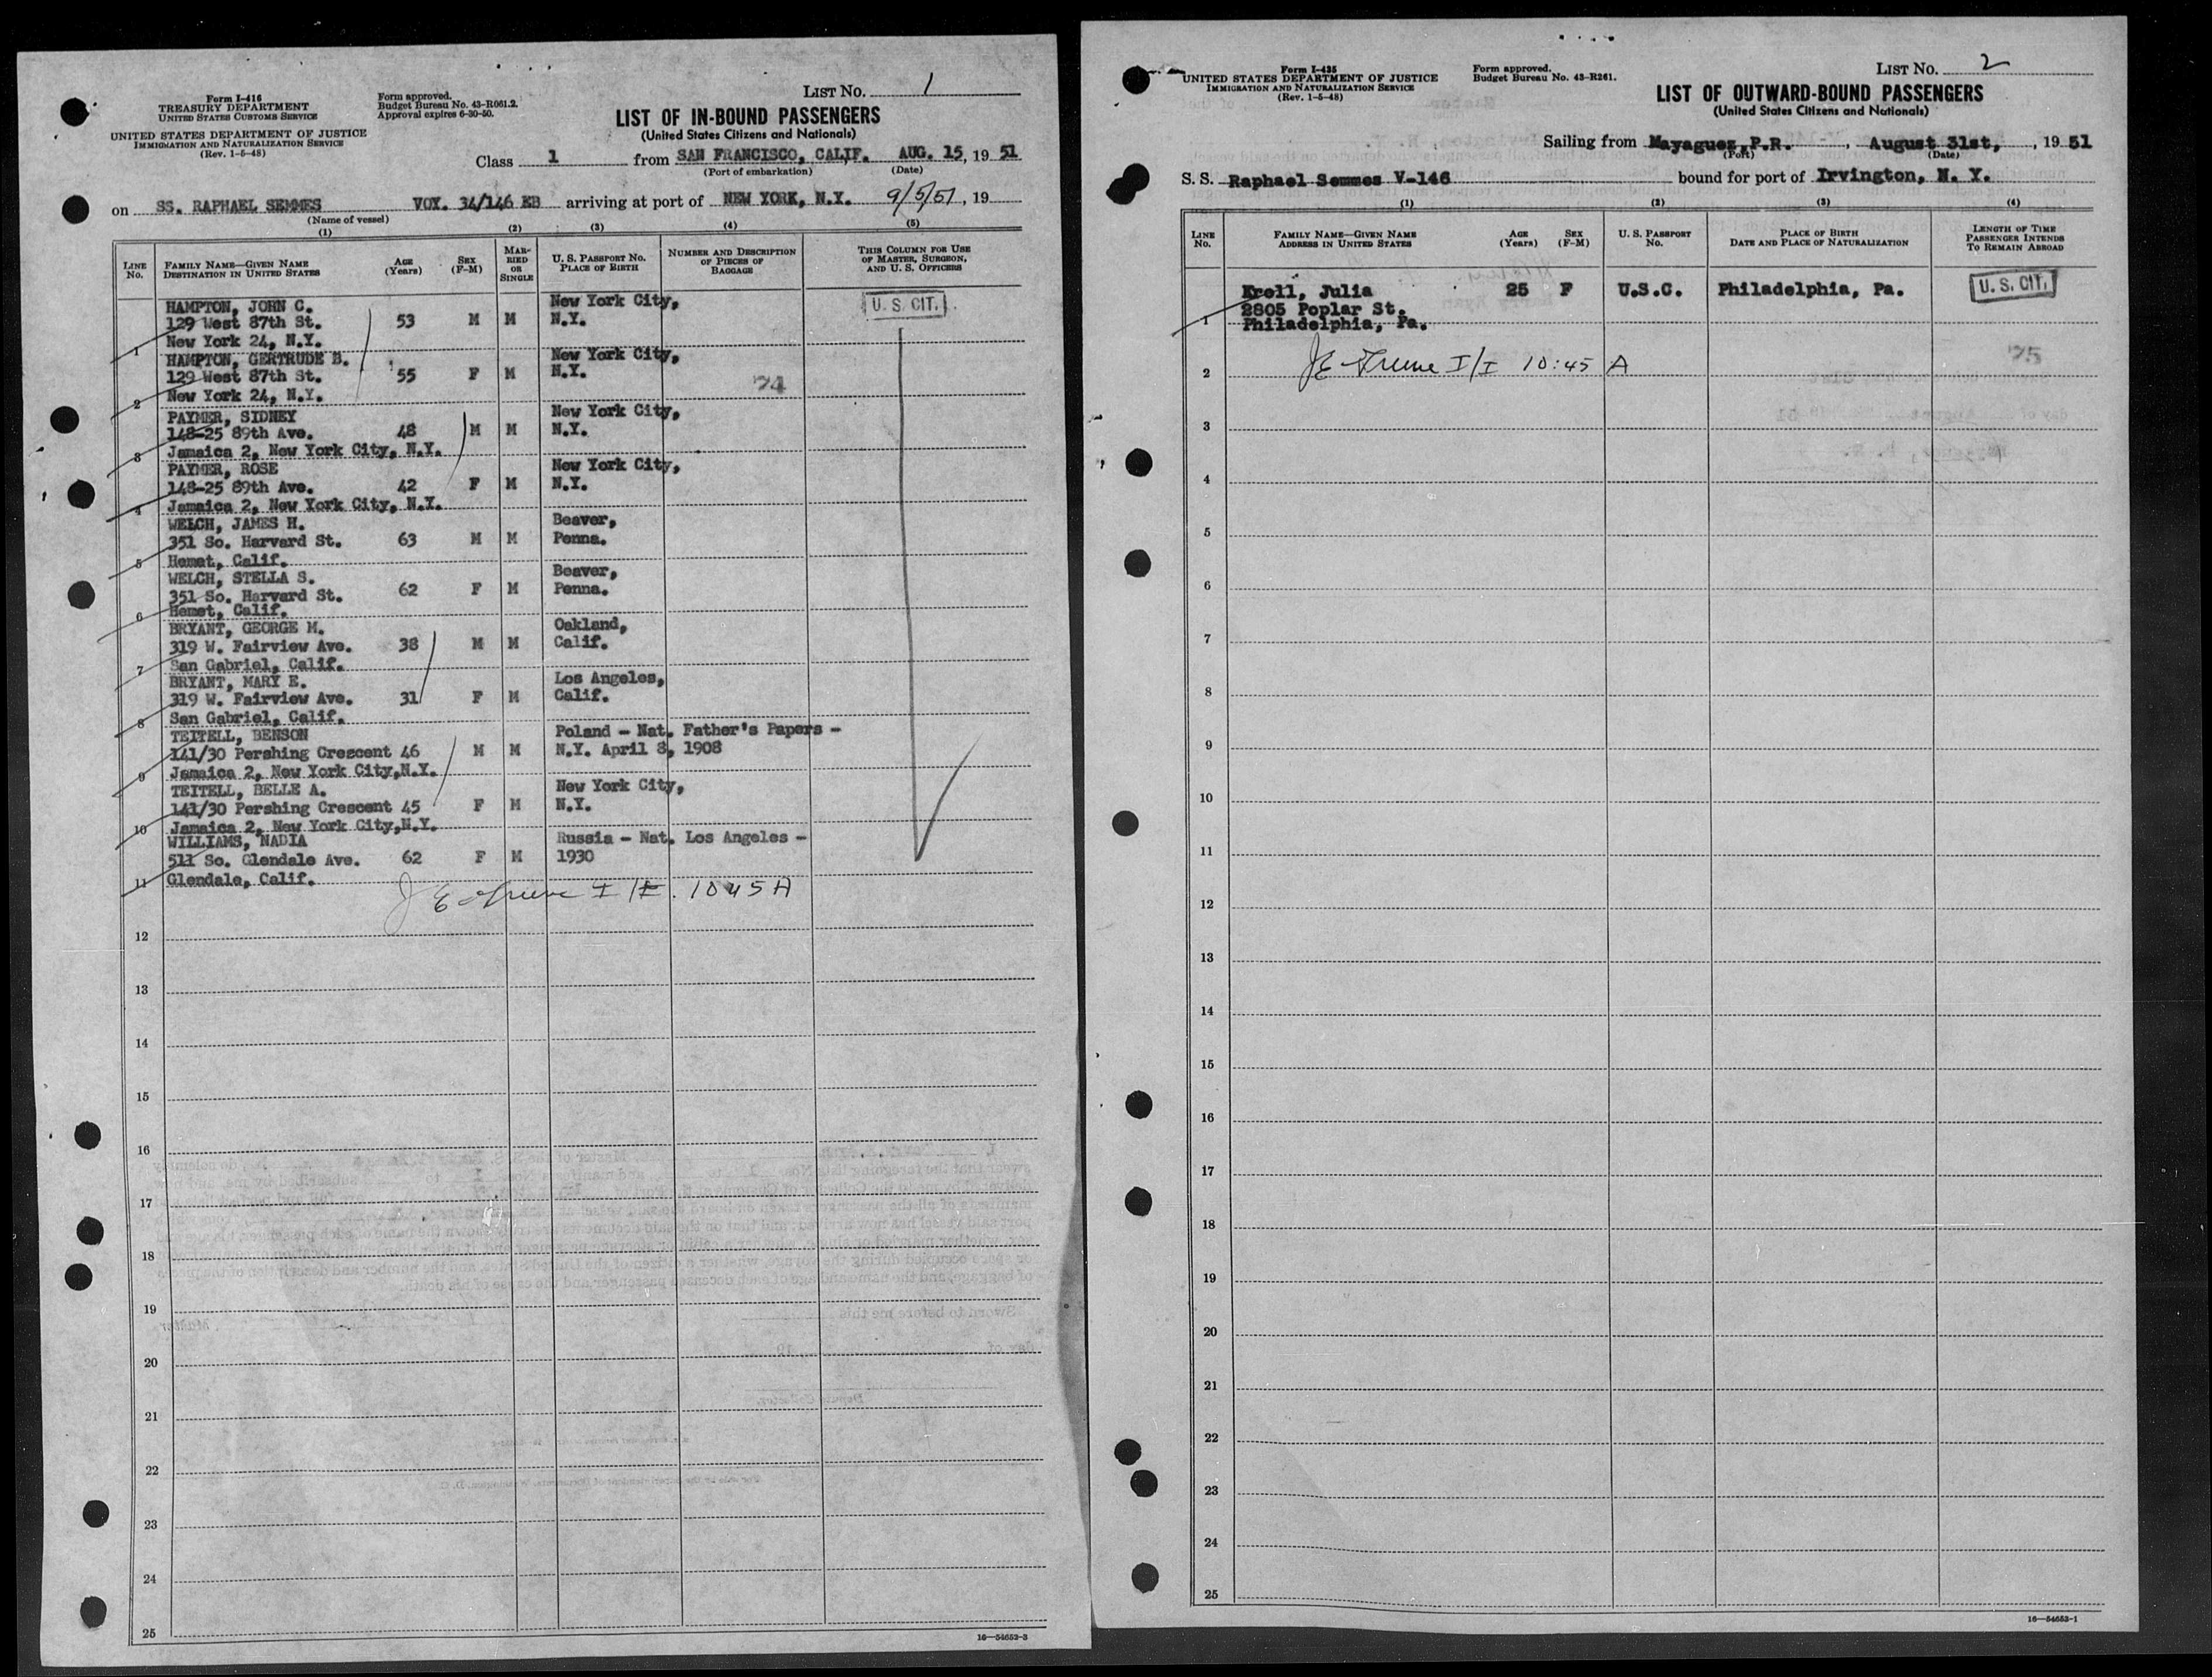 Form I-416
TREASURY DEPARTMENT
UNITED STATES CUSTOMS SERVICE
UNITED STATES DEPARTMENT OF JUSTICE
IMMIGRATION AND NATURALIZATION SERVICE
(Rev. 1-5-48)
Form approved.
Budget Bureau No. 43-R061.2.
Approval expires 6-30-50.
LIST NO. 1
LIST OF IN-BOUND PASSENGERS
(United States Citizens and Nationals)
Class 1 from SAN FRANCISCO, CALIF. AUG. 15, 19 51
(Port of embarkation) (Date)
on SS. RAPHAEL SEMMES VOY. 34/146 EB arriving at port of NEW YORK, N.Y. 9/5/51, 19
(Name of vessel)
(1) (2) (3) (4) (5)
LINE No. FAMILY NAME—GIVEN NAME DESTINATION IN UNITED STATES AGE (Years) SEX (F-M) MARRIED OR SINGLE U. S. PASSPORT NO. PLACE OF BIRTH NUMBER AND DESCRIPTION OF PIECES OF BAGGAGE THIS COLUMN FOR USE OF MASTER, SURGEON, AND U. S. OFFICERS
HAMPTON, JOHN C. New York City, U. S. CIT.
129 West 87th St. 53 M M N.Y.
1 New York 24, N.Y.
HAMPTON, GERTRUDE B. New York City,
129 West 87th St. 55 F M N.Y. 74
2 New York 24, N.Y.
PAYMER, SIDNEY New York City,
148-25 89th Ave. 48 M M N.Y.
3 Jamaica 2, New York City, N.Y.
PAYMER, ROSE New York City,
148-25 89th Ave. 42 F M N.Y.
4 Jamaica 2, New York City, N.Y.
WELCH, JAMES H. Beaver,
351 So. Harvard St. 63 M M Penna.
5 Hemet, Calif.
WELCH, STELLA S. Beaver,
351 So. Harvard St. 62 F M Penna.
6 Hemet, Calif.
BRYANT, GEORGE M. Oakland,
319 W. Fairview Ave. 38 M M Calif.
7 San Gabriel, Calif.
BRYANT, MARY E. Los Angeles,
319 W. Fairview Ave. 31 F M Calif.
8 San Gabriel, Calif.
TEITELL, BENSON Poland - Nat. Father's Papers -
141/30 Pershing Crescent 46 M M N.Y. April 8, 1908
9 Jamaica 2, New York City, N.Y.
TEITELL, BELLE A. New York City,
141/30 Pershing Crescent 45 F M N.Y.
10 Jamaica 2, New York City, N.Y.
WILLIAMS, NADIA Russia - Nat. Los Angeles -
511 So. Glendale Ave. 62 F M 1930
11 Glendale, Calif.
I/I. 1045A
12
13
14
15
16
17
18
19
20
21
22
23
24
25
16—54652-3
Form I-435
UNITED STATES DEPARTMENT OF JUSTICE
IMMIGRATION AND NATURALIZATION SERVICE
(Rev. 1-5-48)
Form approved.
Budget Bureau No. 43-R261.
LIST NO. 2
LIST OF OUTWARD-BOUND PASSENGERS
(United States Citizens and Nationals)
Sailing from Mayaguez, P.R., August 31st, , 19 51
(Port) (Date)
S. S. Raphael Semmes V-146 bound for port of Irvington, N. Y.
(1) (2) (3) (4)
LINE No. FAMILY NAME—GIVEN NAME ADDRESS IN UNITED STATES AGE (Years) SEX (F-M) U. S. PASSPORT No. PLACE OF BIRTH DATE AND PLACE OF NATURALIZATION LENGTH OF TIME PASSENGER INTENDS TO REMAIN ABROAD
Kroll, Julia 25 F U.S.C. Philadelphia, Pa. U. S. CIT.
2805 Poplar St.
1 Philadelphia, Pa.
75
2 I/I 10:45 A
3
4
5
6
7
8
9
10
11
12
13
14
15
16
17
18
19
20
21
22
23
24
25
16—54653-1